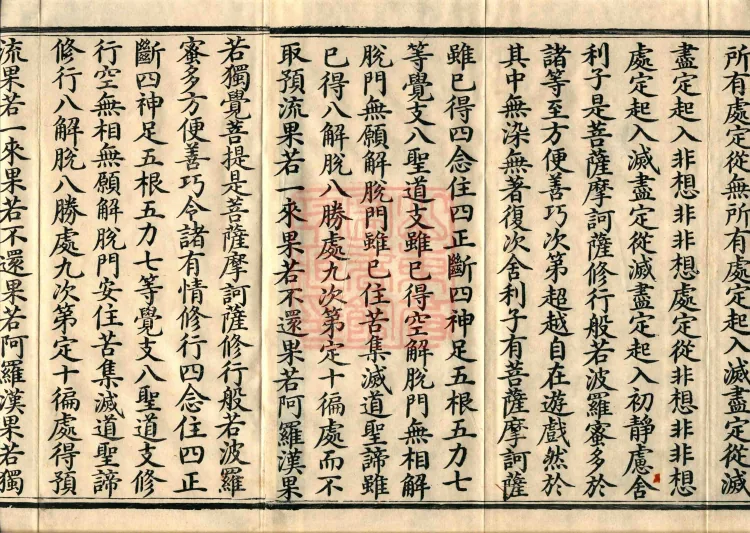 所有處定從無所有處定起入滅盡定從滅
盡定起入非想非非想處定從非想非非想
處定起入滅盡定從滅盡定起入初靜慮舍
利子是菩薩摩訶薩修行般若波羅蜜多於
諸等至方便善巧次第超越自在遊戲然於
其中無染無著復次舍利子有菩薩摩訶薩
雖已得四念住四正斷四神足五根五力七
等覺支八聖道支雖已得空解脫門無相解
脫門無願解脫門雖已住苦集滅道聖諦雖
已得八解脫八勝處九次第定十徧處而不
取預流果若一來果若不還果若阿羅漢果
若獨覺菩提是菩薩摩訶薩修行般若波羅
蜜多方便善巧令諸有情修行四念住四正
斷四神足五根五力七等覺支八聖道支修
行空無相無願解脫門安住苦集滅道聖諦
修行八解脫八勝處九次第定十徧處得預
流果若一來果若不還果若阿羅漢果若獨